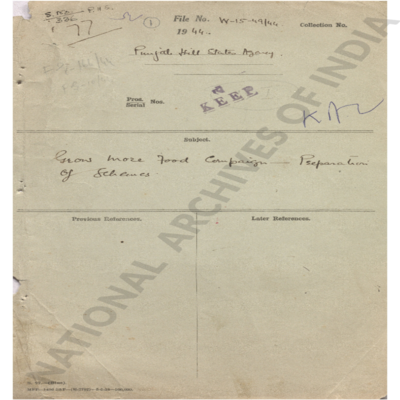 1
File No. W-15-49/44
Collection No.
1944.
77
Punjab Hill States Agency
Pros.
Serial Nos.
KEEP
Subject.
Grow more Food Campaign — Preparation
of Schemes
Previous References.
Later References.
NATIONAL ARCHIVES OF INDIA